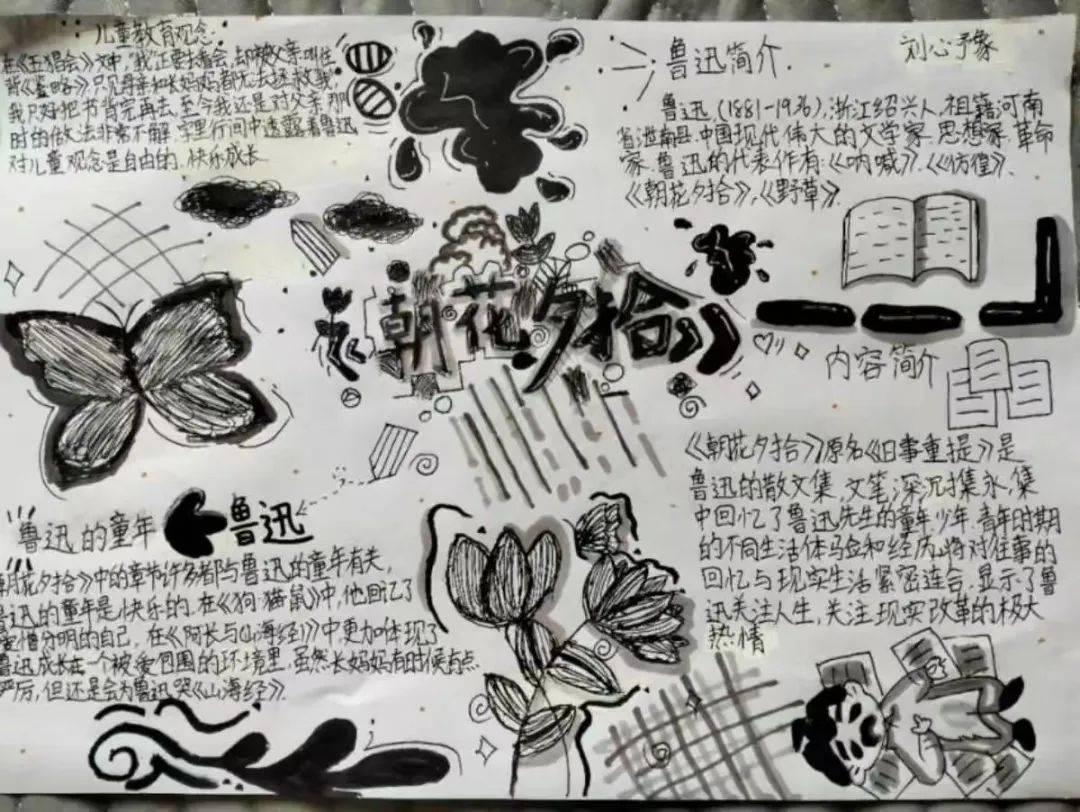 儿童教育观念:
在《五猖会》文中,"我"正要去看会,却被父亲叫住
背《鉴略》.只见母亲和长妈妈都无法拯救我,
我只好把书背完再去,至今我还是对父亲那
时的做法非常不解.字里行间中透露着鲁迅
对儿童观念是自由的、快乐成长.
鲁迅简介.
刘心予
鲁迅(1881-1936),浙江绍兴人,祖籍河南
省
南县,中国现代伟大的文学家.思想家.革命
家.鲁迅的代表作有:《呐喊》、《彷徨》、
《朝花夕拾》,《野草》.
朝花夕拾
内容简介
《朝花夕拾》原名《旧事重提》是
鲁迅的散文集,文笔深沉
永,集
中回忆了鲁迅先生的童年.少年.青年时期
的不同生活体验和经历,将对往事的
回忆与现实生活紧密连合,显示了鲁
迅关注人生,关注现实改革的极大
热情
鲁迅的童年
鲁迅
朝花夕拾》中的章节许多都与鲁迅的童年有关,
鲁迅的童年是快乐的.在《狗·猫·鼠》中,他回忆了
爱憎分明的自己,在《阿长与山海经》中更加体现了
鲁迅成长在一个被爱包围的环境里,虽然长妈妈有时候有点
严厉,但还是会为鲁迅
《山海经》.